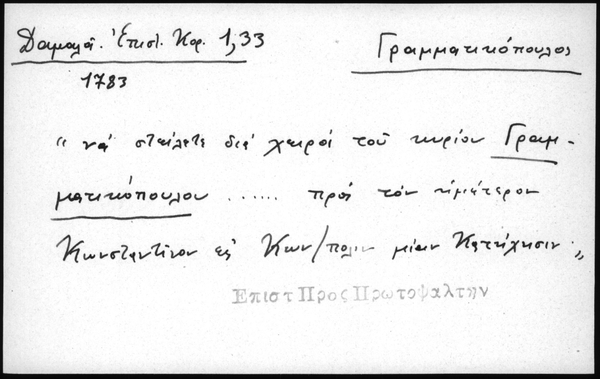 Δαμαλᾶ. Ἐπιστ. Κορ. 1,33
Γραμματικόπουλος
1783
" νά στείλετε διά χειρός τοῦ κυρίου Γραμ-
ματικόπουλου ...... πρός τόν ἡμέτερον
Κωνσταντῖνον εἰς Κων/πολιν μίαν Κατήχησιν "
Επιστ Προς Πρωτοψαλτην